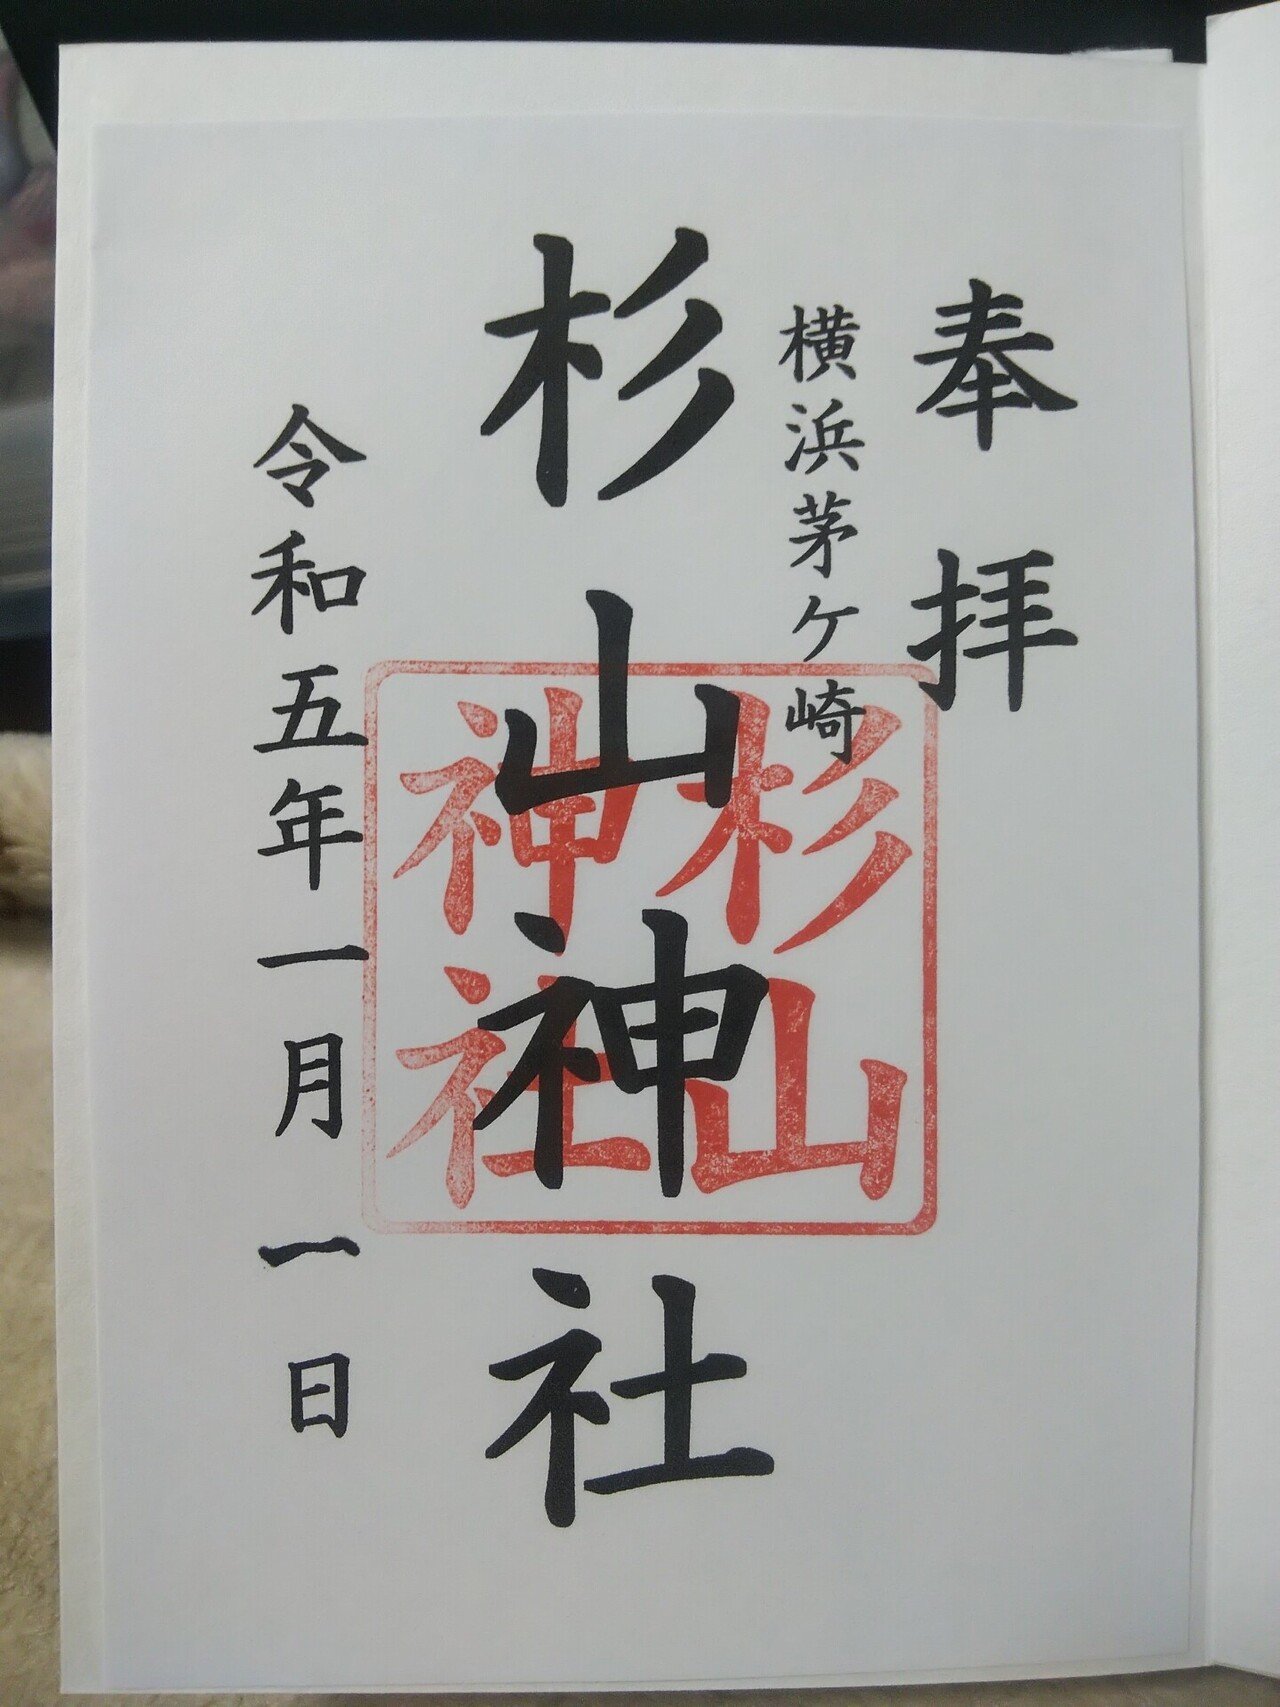 奉拝
横浜茅ケ崎
杉山神社
杉山
神社
令和五年一月一日